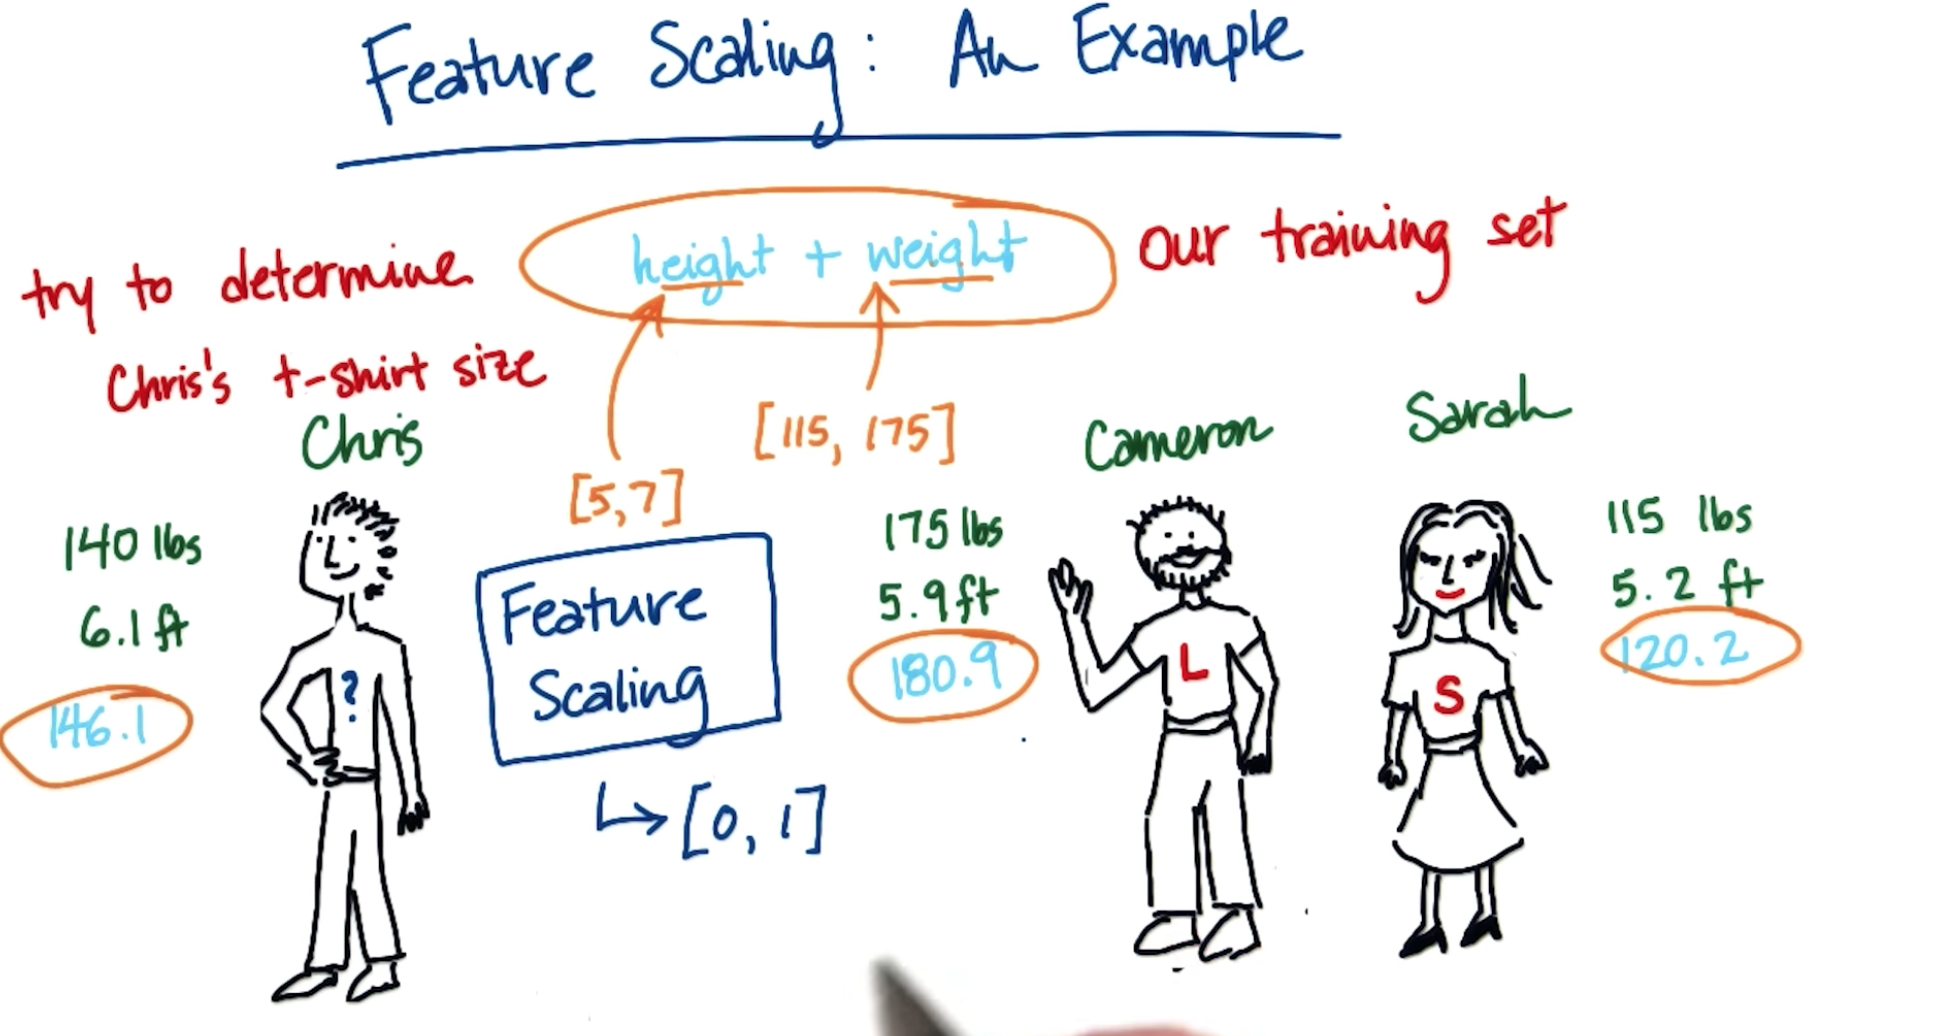 Feature Scaling: An Example
try to determine
Chris's t-shirt size
height + weight
our training set
[5,7]
[115, 175]
Chris
140 lbs
6.1 ft
146.1
?
Feature
Scaling
[0, 1]
Cameron
175 lbs
5.9 ft
180.9
L
Sarah
115 lbs
5.2 ft
120.2
S